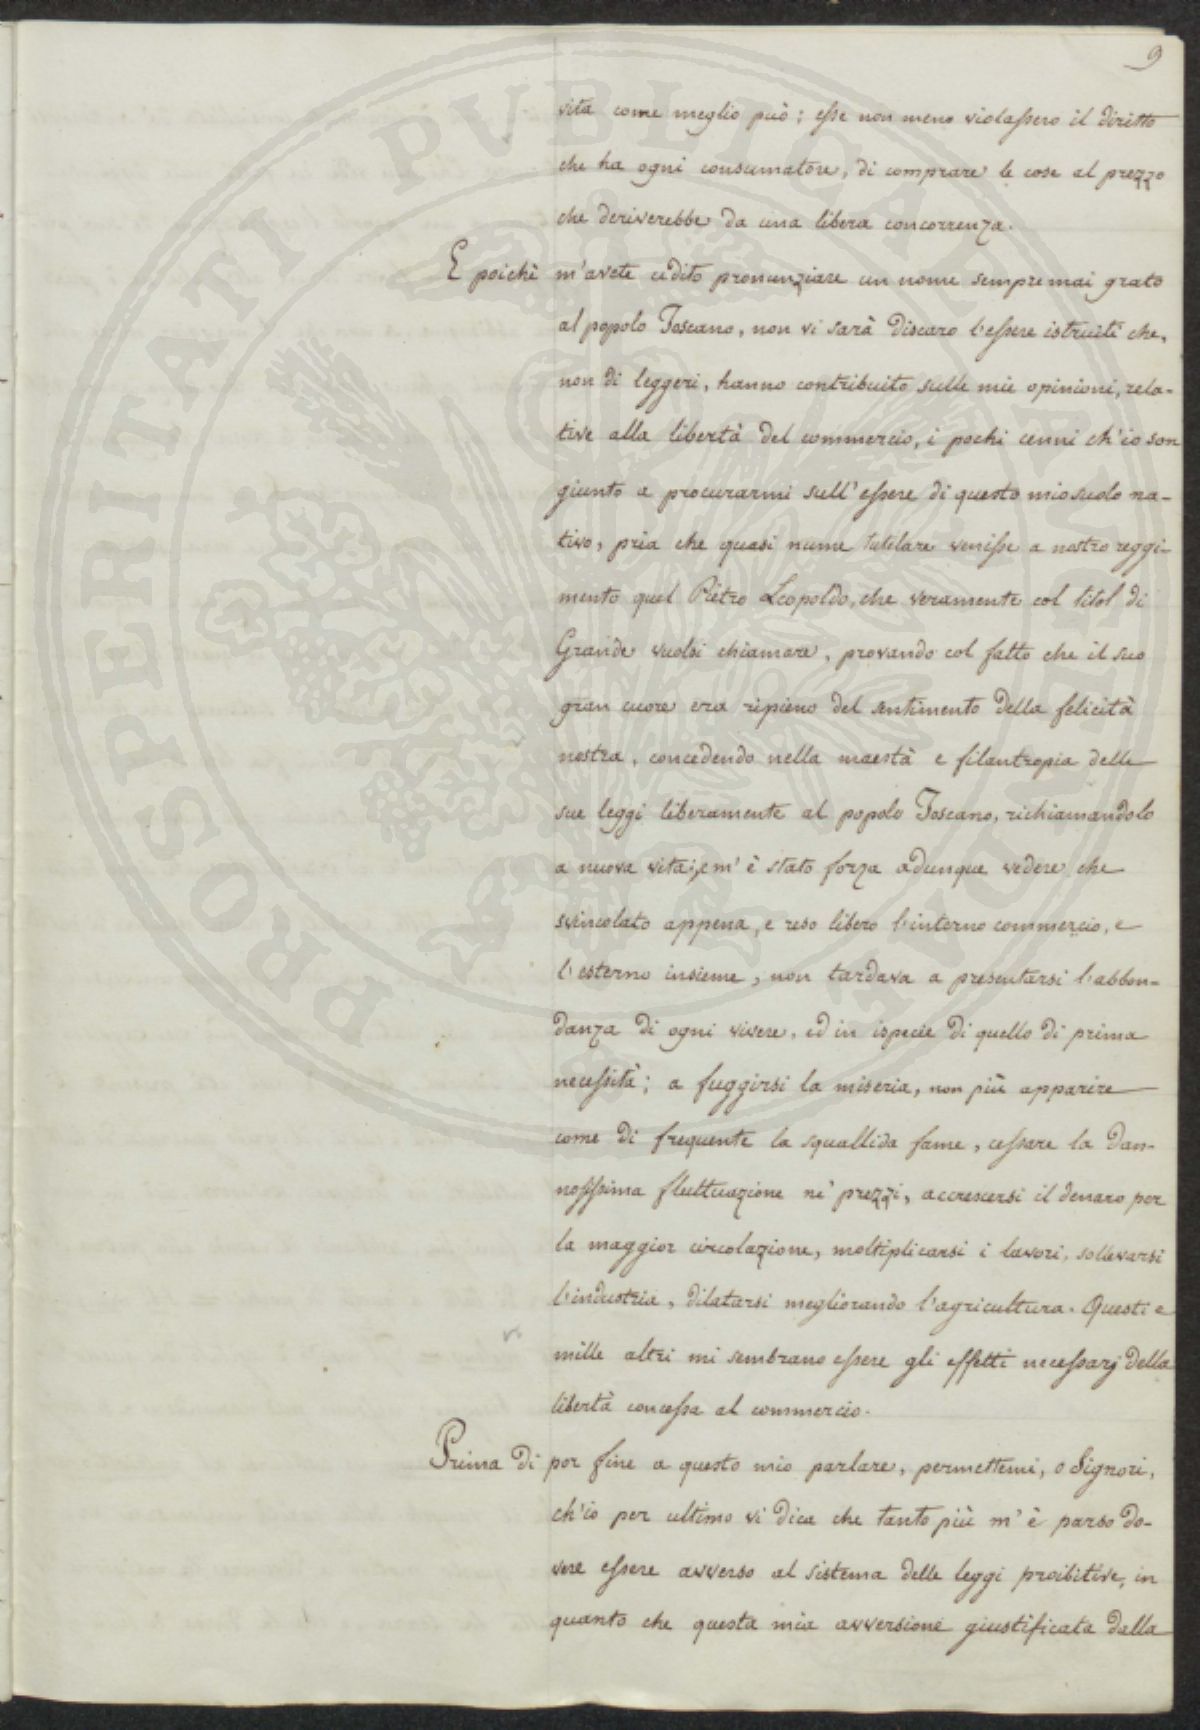 9
vita come meglio può; esse non meno violassero il diritto
che ha ogni consumatore, di comprare le cose al prezzo
che deriverebbe da una libera concorrenza.
E poichè m'avete udito pronunziare un nome sempremai grato
al popolo Toscano, non vi sarà discaro l'essere istruiti che,
non di leggeri, hanno contribuito sulle mie opinioni, rela-
tive alla libertà del commercio, i pochi cenni ch'io son
giunto a procurarmi sull'essere di questo mio suolo na-
tivo, pria che quasi nume tutelare venisse a nostro reggi-
mento quel Pietro Leopoldo, che veramente col titol di
Grande vuolsi chiamare, provando col fatto che il suo
gran cuore era ripieno del sentimento della felicità
nostra, concedendo nella maestà e filantropia delle
sue leggi liberamente al popolo Toscano, richiamandolo
a nuova vita; e m'è stato forza adunque vedere che
svincolato appena, e reso libero l'interno commercio, e
l'esterno insieme, non tardava a presentarsi l'abbon-
danza di ogni vivere, ed in ispecie di quello di prima
necessità; a fuggirsi la miseria, non più apparire
come di frequente la squallida fame, cessare la dan-
nosissima fluttuazione ne' prezzi, accrescersi il denaro per
la maggior circolazione, moltiplicarsi i lavori, sollevarsi
l'industria, dilatarsi megliorando l'agricultura. Questi e
mille altri mi sembrano essere gli effetti necessarj della
libertà concessa al commercio.
Prima di por fine a questo mio parlare, permettemi, o Signori,
ch'io per ultimo vi dica che tanto più m'è parso do-
vere essere avverso al sistema delle leggi proibitive, in
quanto che questa mia avversione giustificata dalla
PROSPERITATI PVBLICAE AVGENDAE